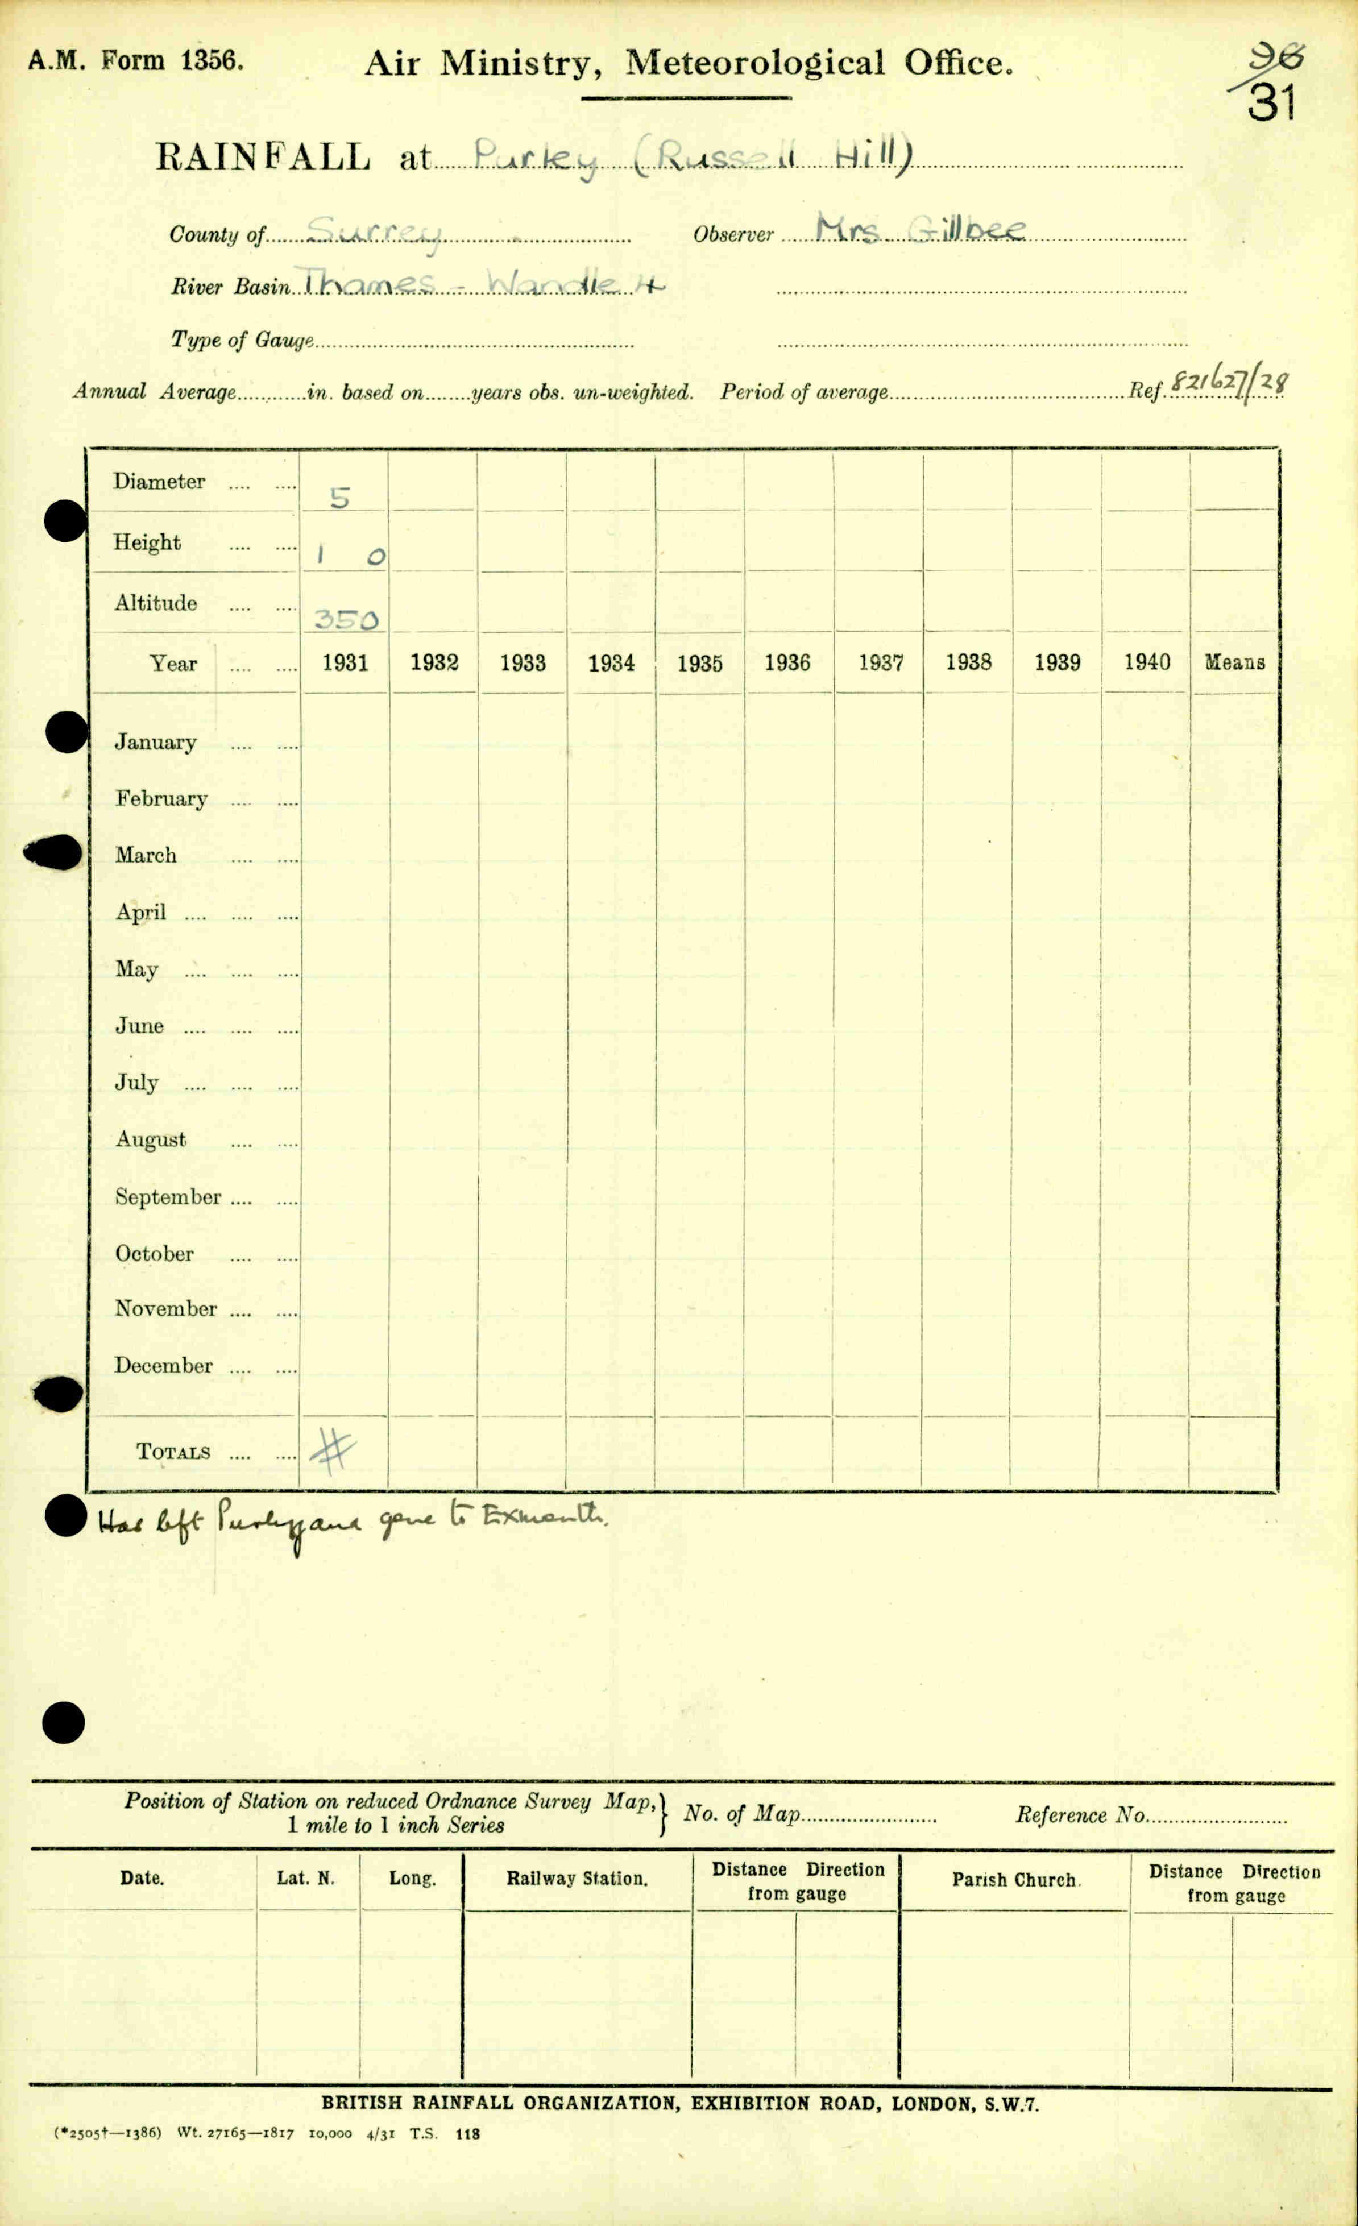 A.M. Form 1356.
Air Ministry, Meteorological Office.
96
31
RAINFALL at Purley (Russell Hill)
County of Surrey
Observer Mrs Gillbee
River Basin Thames - Wandle 4
Type of Gauge
Annual Average in. based on years obs. un-weighted. Period of average Ref. 821627/28
Diameter 5
Height 1 0
Altitude 350
Year 1931 1932 1933 1934 1935 1936 1937 1938 1939 1940 Means
January
February
March
April
May
June
July
August
September
October
November
December
TOTALS #
Has left Purley and gone to Exmouth.
Position of Station on reduced Ordnance Survey Map, } No. of Map Reference No.
1 mile to 1 inch Series
Date. Lat. N. Long. Railway Station. Distance Direction from gauge Parish Church. Distance Direction from gauge
BRITISH RAINFALL ORGANIZATION, EXHIBITION ROAD, LONDON, S.W.7.
(*2505†—1386) Wt. 27165—1817 10,000 4/31 T.S. 118